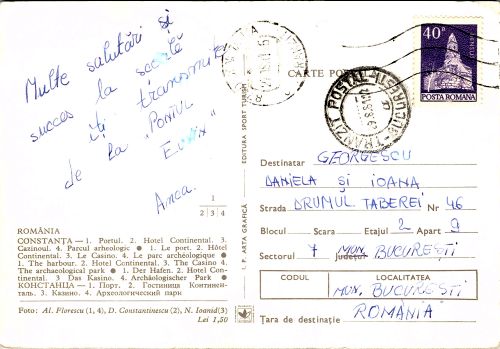 Multe salutări și
succes la școală
îți transmite
de la "Pontul
Euxin"
Anca.
1
2 3 4
ROMÂNIA
CONSTANȚA — 1. Portul. 2. Hotel Continental. 3.
Cazinoul. 4. Parcul arheologic ● 1. Le port. 2. Hôtel
Continental. 3. Le Casino. 4. Le parc archéologique ●
1. The harbour. 2. Hotel Continental. 3. The Casino 4.
The archaeological park ● 1. Der Hafen. 2. Hotel Con-
tinental. 3 Das Kasino. 4. Archäologischer Park ●
КОНСТАНЦА — 1. Порт. 2. Гостиница Континен-
таль. 3. Казино. 4. Археологический парк
Foto: Al. Florescu (1, 4), D. Constantinescu (2), N. Ioanid(3)
Lei 1,50
I. P. ARTA GRAFICĂ
EDITURA SPORT TURISM
CARTE POȘTALĂ
40B
DENSUȘ
POSTA ROMANA
BUCUREȘTI
TRANZIT POȘTAL
Destinatar GEORGESCU
DANIELA ȘI IOANA
Strada DRUMUL TABEREI Nr 46
Blocul Scara Etajul 2 Apart 9
Sectorul 7 Județul MUN. BUCUREȘTI
CODUL
LOCALITATEA
MUN. BUCUREȘTI
ROMANIA
Țara de destinație